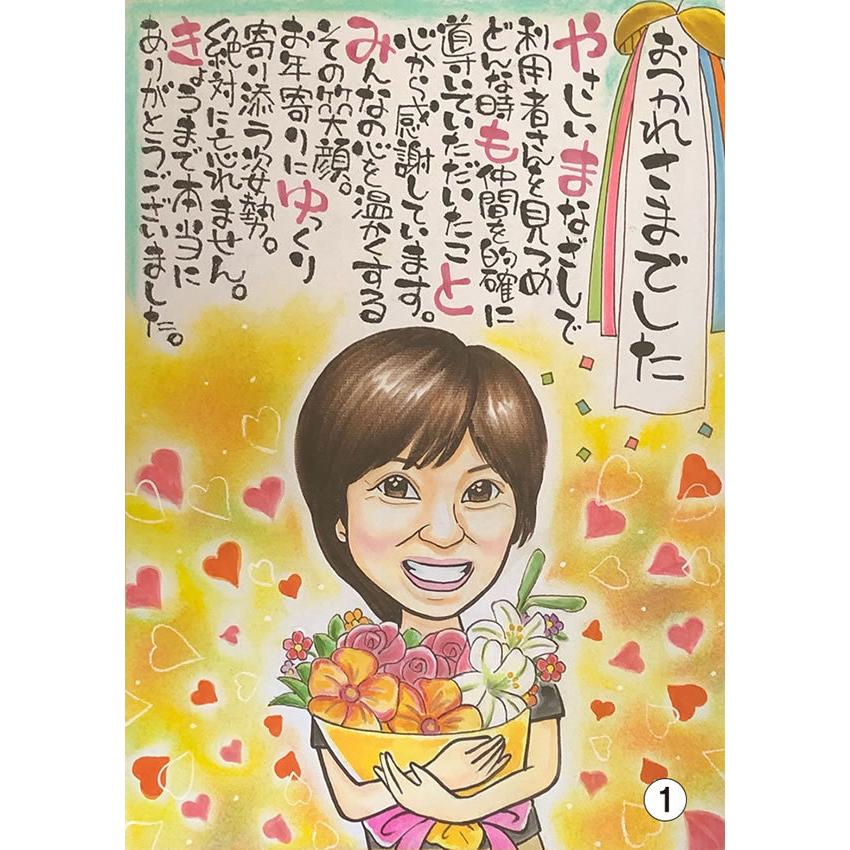 おつかれさまでした
やさしいまなざしで
利用者さんを見つめ
どんな時も仲間を的確に
導いていただいたこと
心から感謝しています。
みんなの心を温かくする
その笑顔。
お年寄りにゆっくり
寄り添う姿勢。
絶対に忘れません。
きょうまで本当に
ありがとうございました。
1